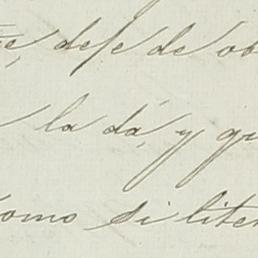 defe de ob
la dá, y qu
como si liter